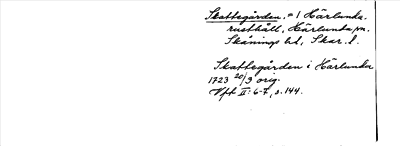 Skattegården. = 1 Härlunda.
rusthåll, Härlunda sn.
Skånings hd, Skar. l.
Skattegården i Härlunda
1723 20/3 orig.
Vft II: 6-7, s. 144.